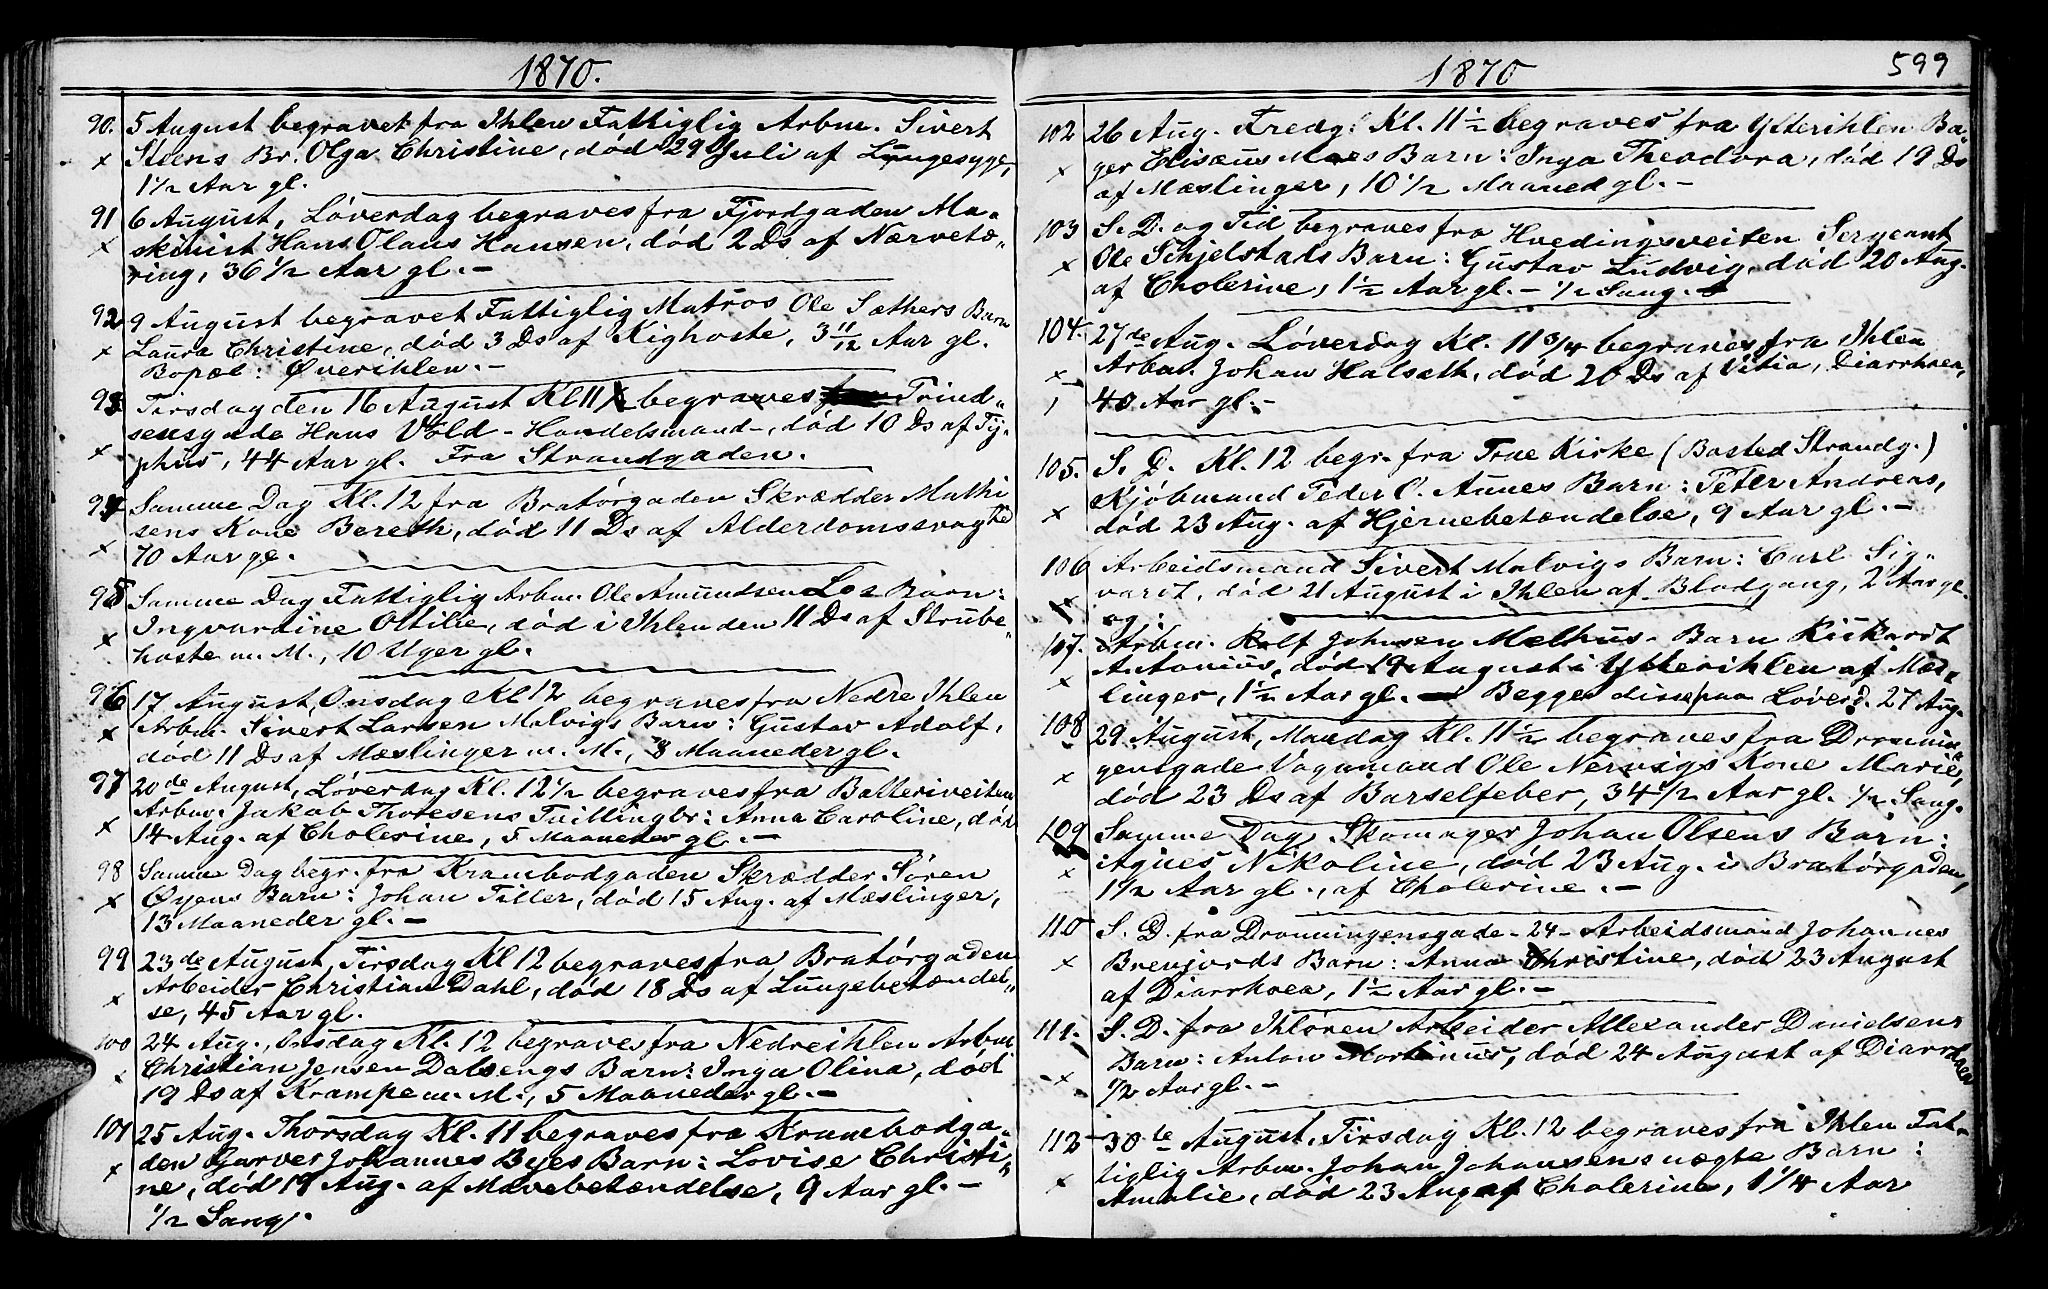 1870.
90. 5 August begravet fra Ihlen Fattiglig Arbm. Sivert
x Steens Br. Olga Christine, død 29 Juli af Lungesyge,
1½ Aar gl.
91 6 August, Løverdag begraves fra Fjordgaden Ma-
x skinist Hans Olaus Hansen, død 2 Ds af Nærvetæ-
ring, 36 ½ Aar gl. –
92 9 August begravet Fattiglig Matros Ole Sæthers Barn
x Laura Christine, død 3 Ds af Kighoste, 3 11/12 Aar gl.
Bopæl: Øverihlen. –
93 Tirsdag den 16 August Kl 11 begraves Trind-
sensgade Hans Vold – Handelsmand –, død 10 Ds af Ty-
x phus, 44 Aar gl. Fra Strandgaden.
94 Samme Dag Kl. 12 fra Bratørgaden Skrædder Mathi
sens Kone Bereth, død 11 Ds af Alderdomssvaghed
x 70 Aar gl.
95 Samme Dag Fattiglig Arbm. Ole Amundsen Los Barn:
x Ingvardine Ottilie, død i Ihlen den 11 Ds af Strube-
hoste m. M., 10 Uger gl.
96 17 August, Onsdag Kl 12 begraves fra Nedre Ihlen
x Arbm. Sivert Larsen Malvigs Barn: Gustav Adolf,
død 11 Ds af Mæslinger m. M., 8 Maaneder gl.
97 20de August, Løverdag Kl. 12½ begraves fra Batteriveiten
Arbm. Jakob Thoresens Tvillingbr: Anna Caroline, død
x 14 Aug. af Cholerine, 5 Maaneder gl. –
98 Samme Dag begr. fra Krambodgaden Skrædder Søren
x Øyens Barn: Johan Tiller, død 15 Aug. af Mæslinger,
13 Maaneder gl. –
99 23de August, Tirsdag Kl 12 begraves fra Bratørgaden
x Arbeider Christian Dahl, død 18 Ds af Lungebetændel-
se, 45 Aar gl.
100 24 Aug., Onsdag Kl. 12 begraves fra Nedreihlen Arbm
x Christian Jensen Dalsengs Barn: Inga Olina, død
19 Ds af Krampe m. M., 5 Maaneder gl. –
101 25 Aug. Thorsdag Kl. 11 begraves fra Krambodga-
x den Garver Johannes Byes Barn: Lovise Christi-
ne, død 19 Aug. af Mavebetændelse, 9 Aar gl. –
½ Sang.
1870
599
102 26 Aug. Fredg: Kl. 11½ begraves fra Ytterihlen Ba-
x ger Elisæus Moes Barn: Inga Theodora, død 19 Ds
af Mæslinger, 10 ½ Maaned gl. –
103 S. D. og Tid begraves fra Hvedingsveiten Sergeant
x Ole Schjelstads Barn: Gustav Ludvig, død 20 Aug.
af Cholerine, 1½ Aar gl. – ½ Sang.
104. 27de Aug. Løverdag Kl. 11 3/4 begraves fra Ihlen
x Arbm. Johan Halseth, død 20 Ds af Vitia, Diarrhoea,
1 40 Aar gl. –
105. S. D. Kl. 12 begr. fra Frue Kirke (Bosted Strandg.)
x Kjøbmand Peder O. Aunes Barn: Peter Andreas,
død 23 Aug. af Hjernebetændelse, 9 Aar gl. –
106 Arbeidsmand Sivert Malvigs Barn: Carl Sig-
vart, død 21 August i Ihlen af Blodgang, 2 Aar gl.
og:
107. Arbm. Rolf Johnsen Melhus Barn Rickardt
x Antonius, død 19 August i Ytterihlen af Mæs-
linger, 1½ Aar gl. Begge disse paa Løverd. 27 Aug.
108 29 August, Mandag Kl. 11½ begraves fra Dronnin-
x gensgade Vognmand Ole Nervigs Kone Marie,
død 23 Ds af Barselfeber, 34½ Aar gl. ½ Sang.
109 Samme Dag Skomager Johan Olsens Barn:
x Agnes Nikoline, død 23 Aug. i Bratørgaden,
1½ Aar gl., af Cholerine. –
110 S. D. fra Dronningensgade – 24 – Arbeidsmand Johannes
x Brenjords Barn: Anna Christine, død 23 August
af Diarrhoea, 1½ Aar gl. –
111. S. D. fra Ihløren Arbeider Alexander Danielsens
x Barn: Anton Martinus, død 24 August af Diarrhoea
½ Aar gl. –
112 30te August, Tirsdag Kl. 12 begraves fra Ihlen Fat-
x tiglig Arbm. Johan Johansens uægte Barn:
Amalie, død 23 Aug af Cholerine, 1 1/4 Aar